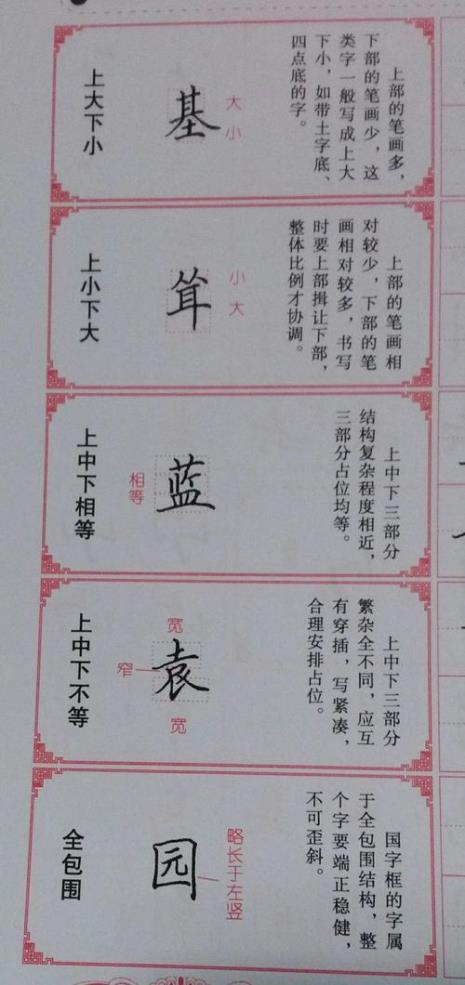 上大下小
基
大
小
上部的笔画多，
下部的笔画少，这
类字一般写成上大
下小，如带土字底、
四点底的字。
上小下大
笪
小
大
上部的笔画相
对较少，下部的笔
画相对较多，书写
时要上部揖让下部，
整体比例才协调。
上中下相等
蓝
相等
上中下三部分
结构复杂程度相近，
三部分占位均等。
上中下不等
袁
宽
窄
宽
上中下三部分
繁杂全不同，应互
有穿插，写紧凑，
合理安排占位。
全包围
园
略长于左竖
国字框的字属
于全包围结构，整
个字要端正稳健，
不可歪斜。